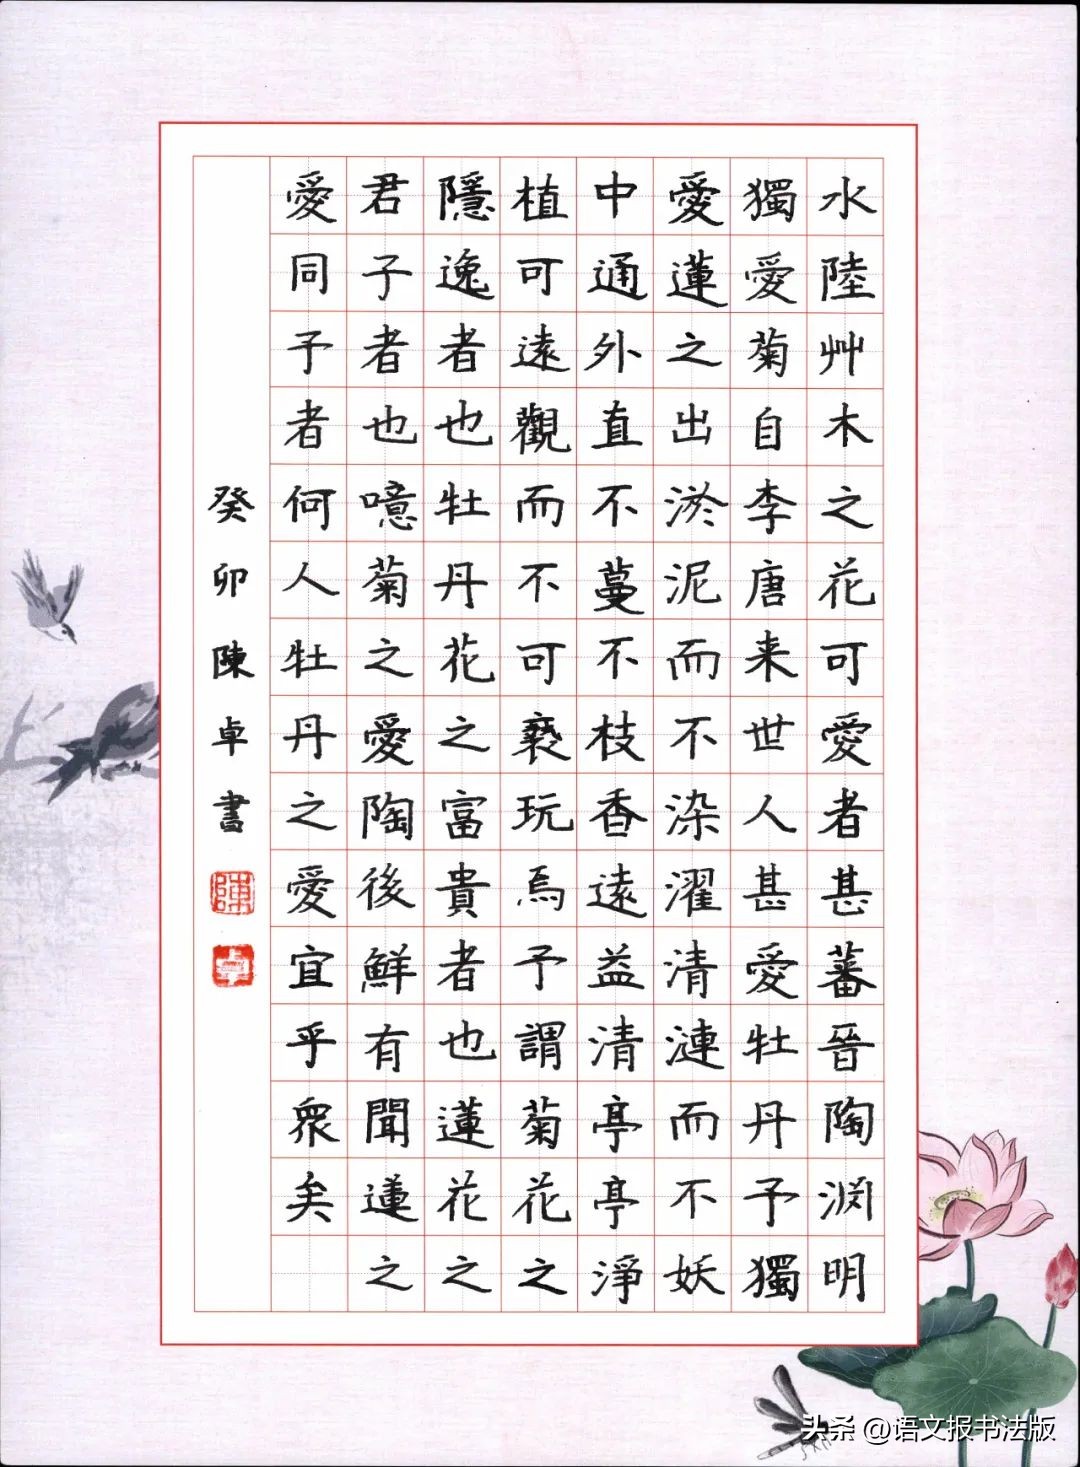 水陸艸木之花可愛者甚蕃晉陶淵明
獨愛菊自李唐来世人甚愛牡丹予獨
愛蓮之出淤泥而不染濯清漣而不妖
中通外直不蔓不枝香遠益清亭亭淨
植可遠觀而不可褻玩焉予謂菊花之
隱逸者也牡丹花之富貴者也蓮花之
君子者也噫菊之愛陶後鮮有聞蓮之
愛同予者何人牡丹之愛宜乎衆矣
癸卯陳卓書
陳
卓
头条 @语文报书法版